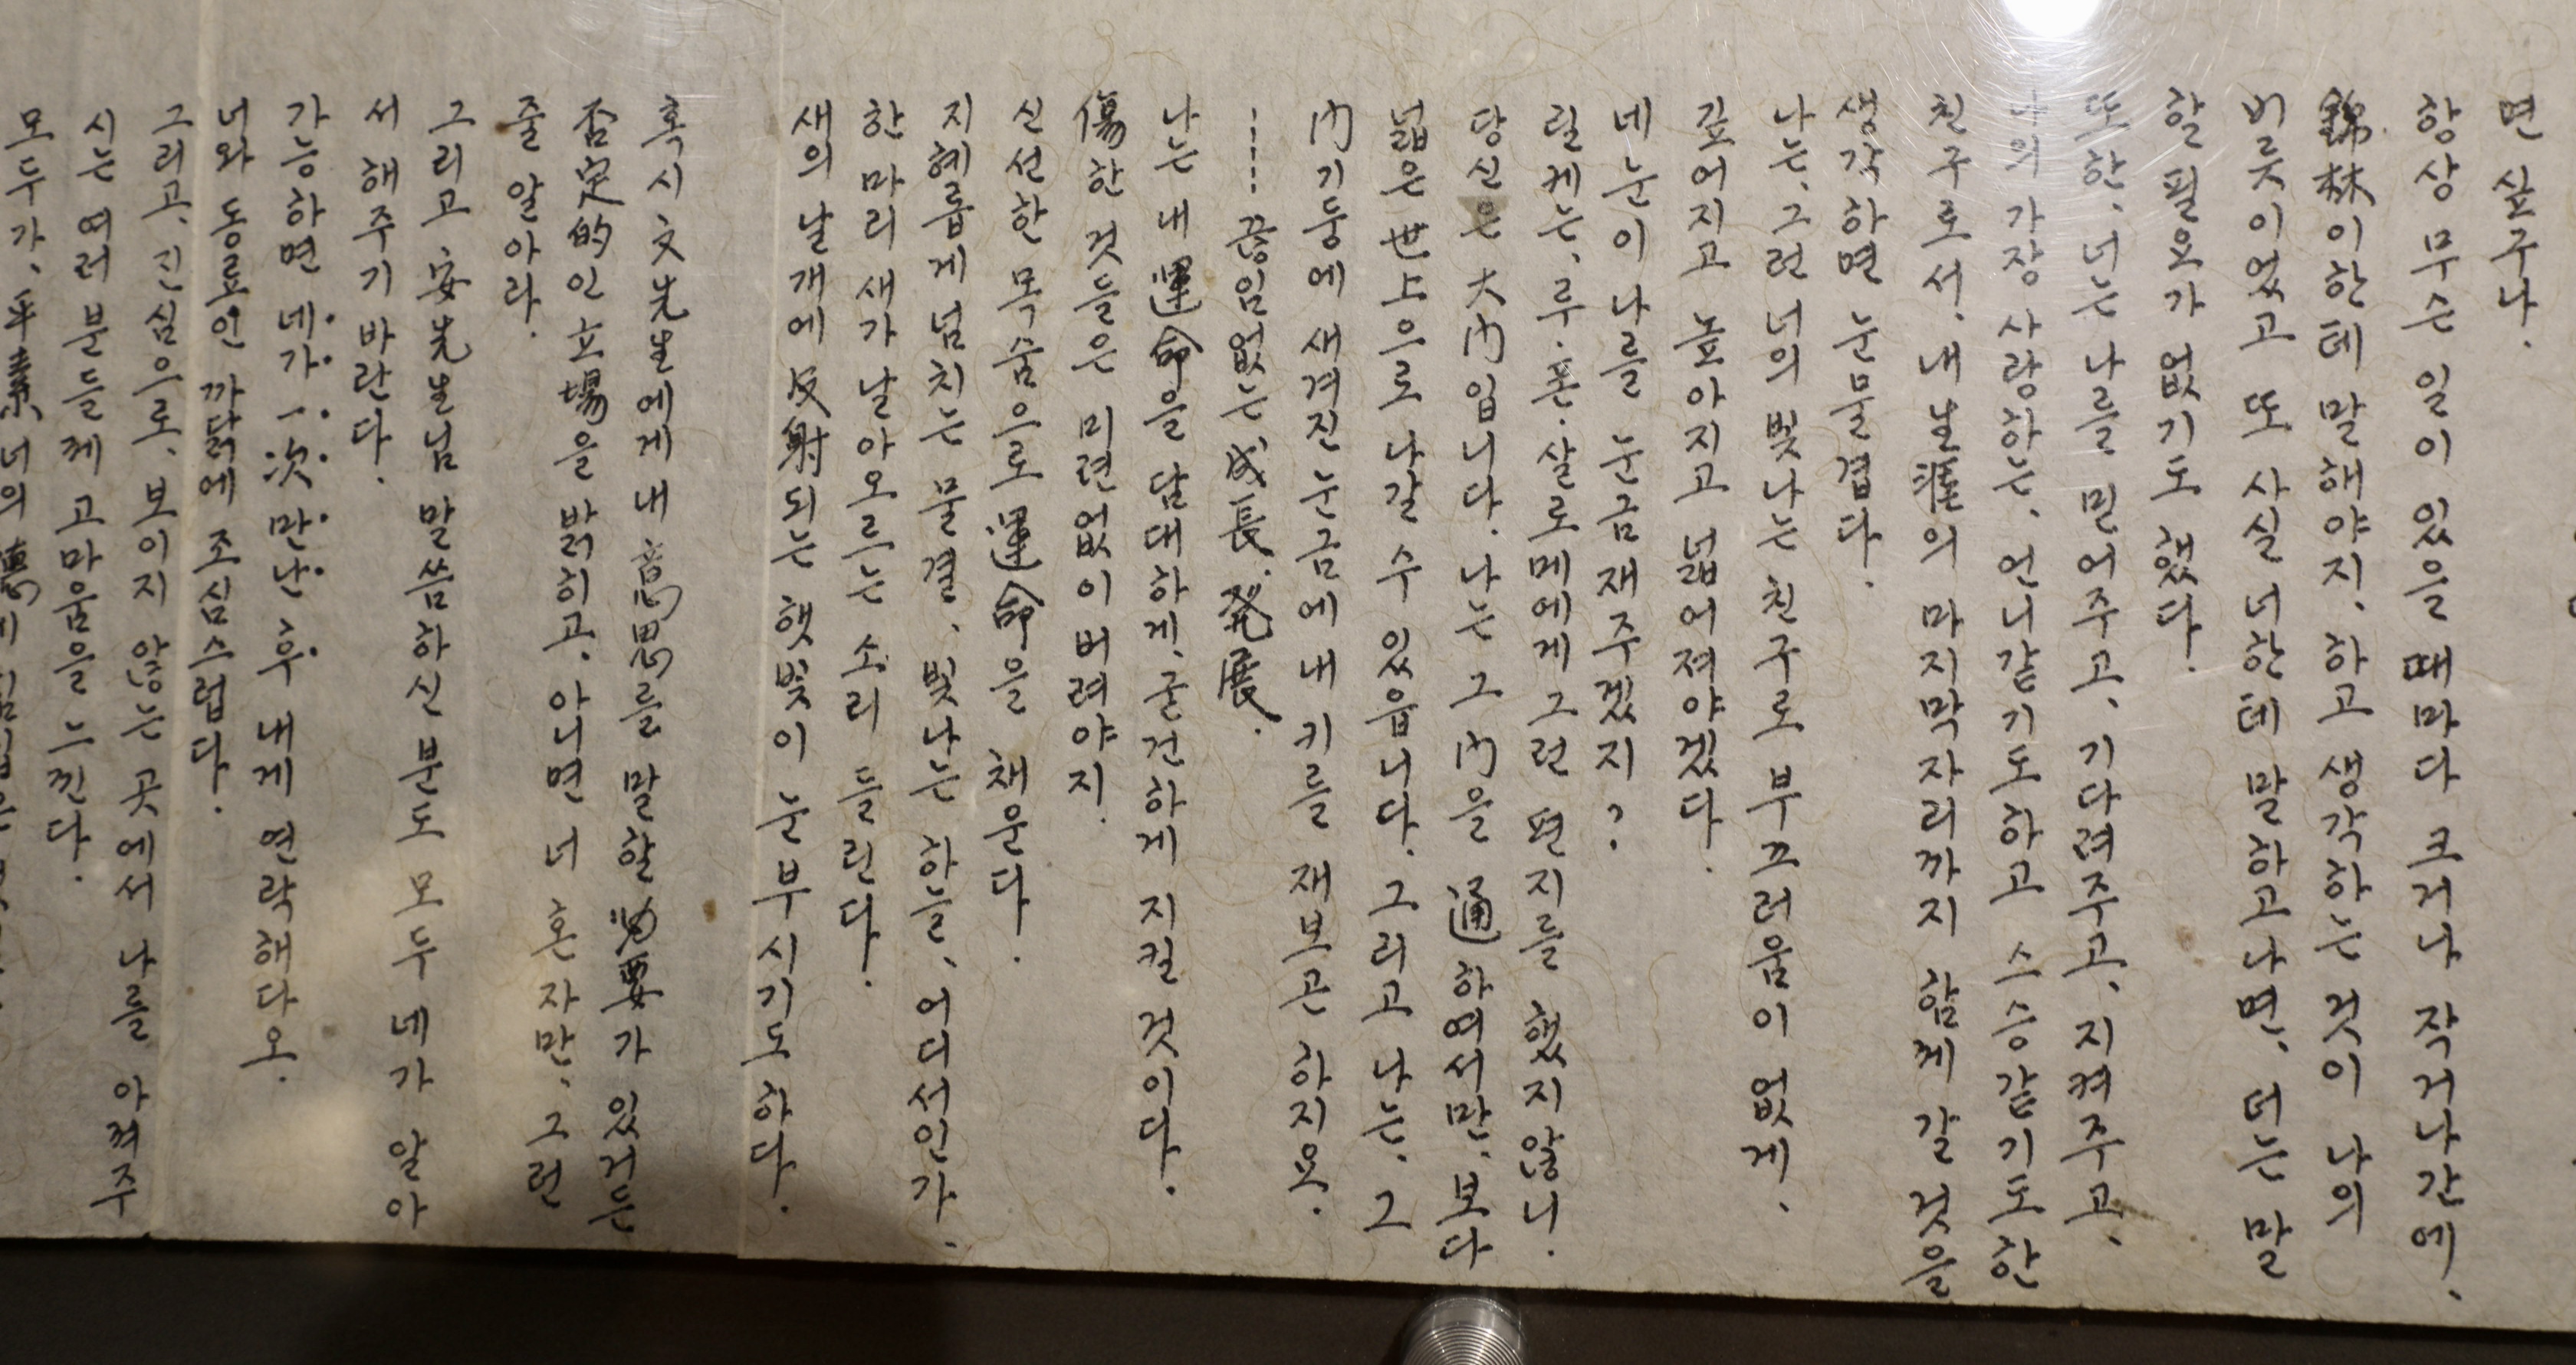 면 싶구나.
항상 무슨 일이 있을 때마다 크거나 작거나간에,
錦林이한테 말해야지, 하고 생각하는 것이 나의
버릇이었고 또 사실 너한테 말하고나면, 더는 말
할 필요가 없기도 했다.
또한, 너는 나를 믿어주고, 기다려주고, 지켜주고,
나의 가장 사랑하는, 언니같기도하고 스승같기도한
친구로서, 내 生涯의 마지막자리까지 함께 갈 것을
생각하면 눈물겹다.
나는, 그런 너의 빛나는 친구로 부끄러움이 없게,
깊어지고 높아지고 넓어져야겠다.
네 눈이 나를 눈금재주겠지?
릴케는, 루·폰·살로메에게 그런 편지를 했지않니.
당신은 大門입니다. 나는 그 門을 通하여서만, 보다
넓은 世上으로 나갈 수 있읍니다. 그리고 나는, 그
門기둥에 새겨진 눈금에 내 키를 재보곤 하지요.
……끊임없는 成長, 発展.
나는 내 運命을 담대하게, 굳건하게 지킬 것이다.
傷한 것들은 미련없이 버려야지.
신선한 목숨으로 運命을 채운다.
지혜롭게 넘치는 물결, 빛나는 하늘, 어디서인가,
한 마리 새가 날아오르는 소리 들린다.
새의 날개에 反射되는 햇빛이 눈부시기도 하다.
혹시 文先生에게 내 意思를 말할 必要가 있거든
否定的인 立場을 밝히고, 아니면 너 혼자만, 그런
줄 알아라.
그리고 安先生님 말씀하신 분도 모두 네가 알아
서 해주기 바란다.
가능하면 네가 一次 만난 후 내게 연락해다오.
너와 동료인 까닭에 조심스럽다.
그리고, 진심으로, 보이지 않는 곳에서 나를 아껴주
시는 여러분들께 고마움을 느낀다.
모두가, 平素 너의 德